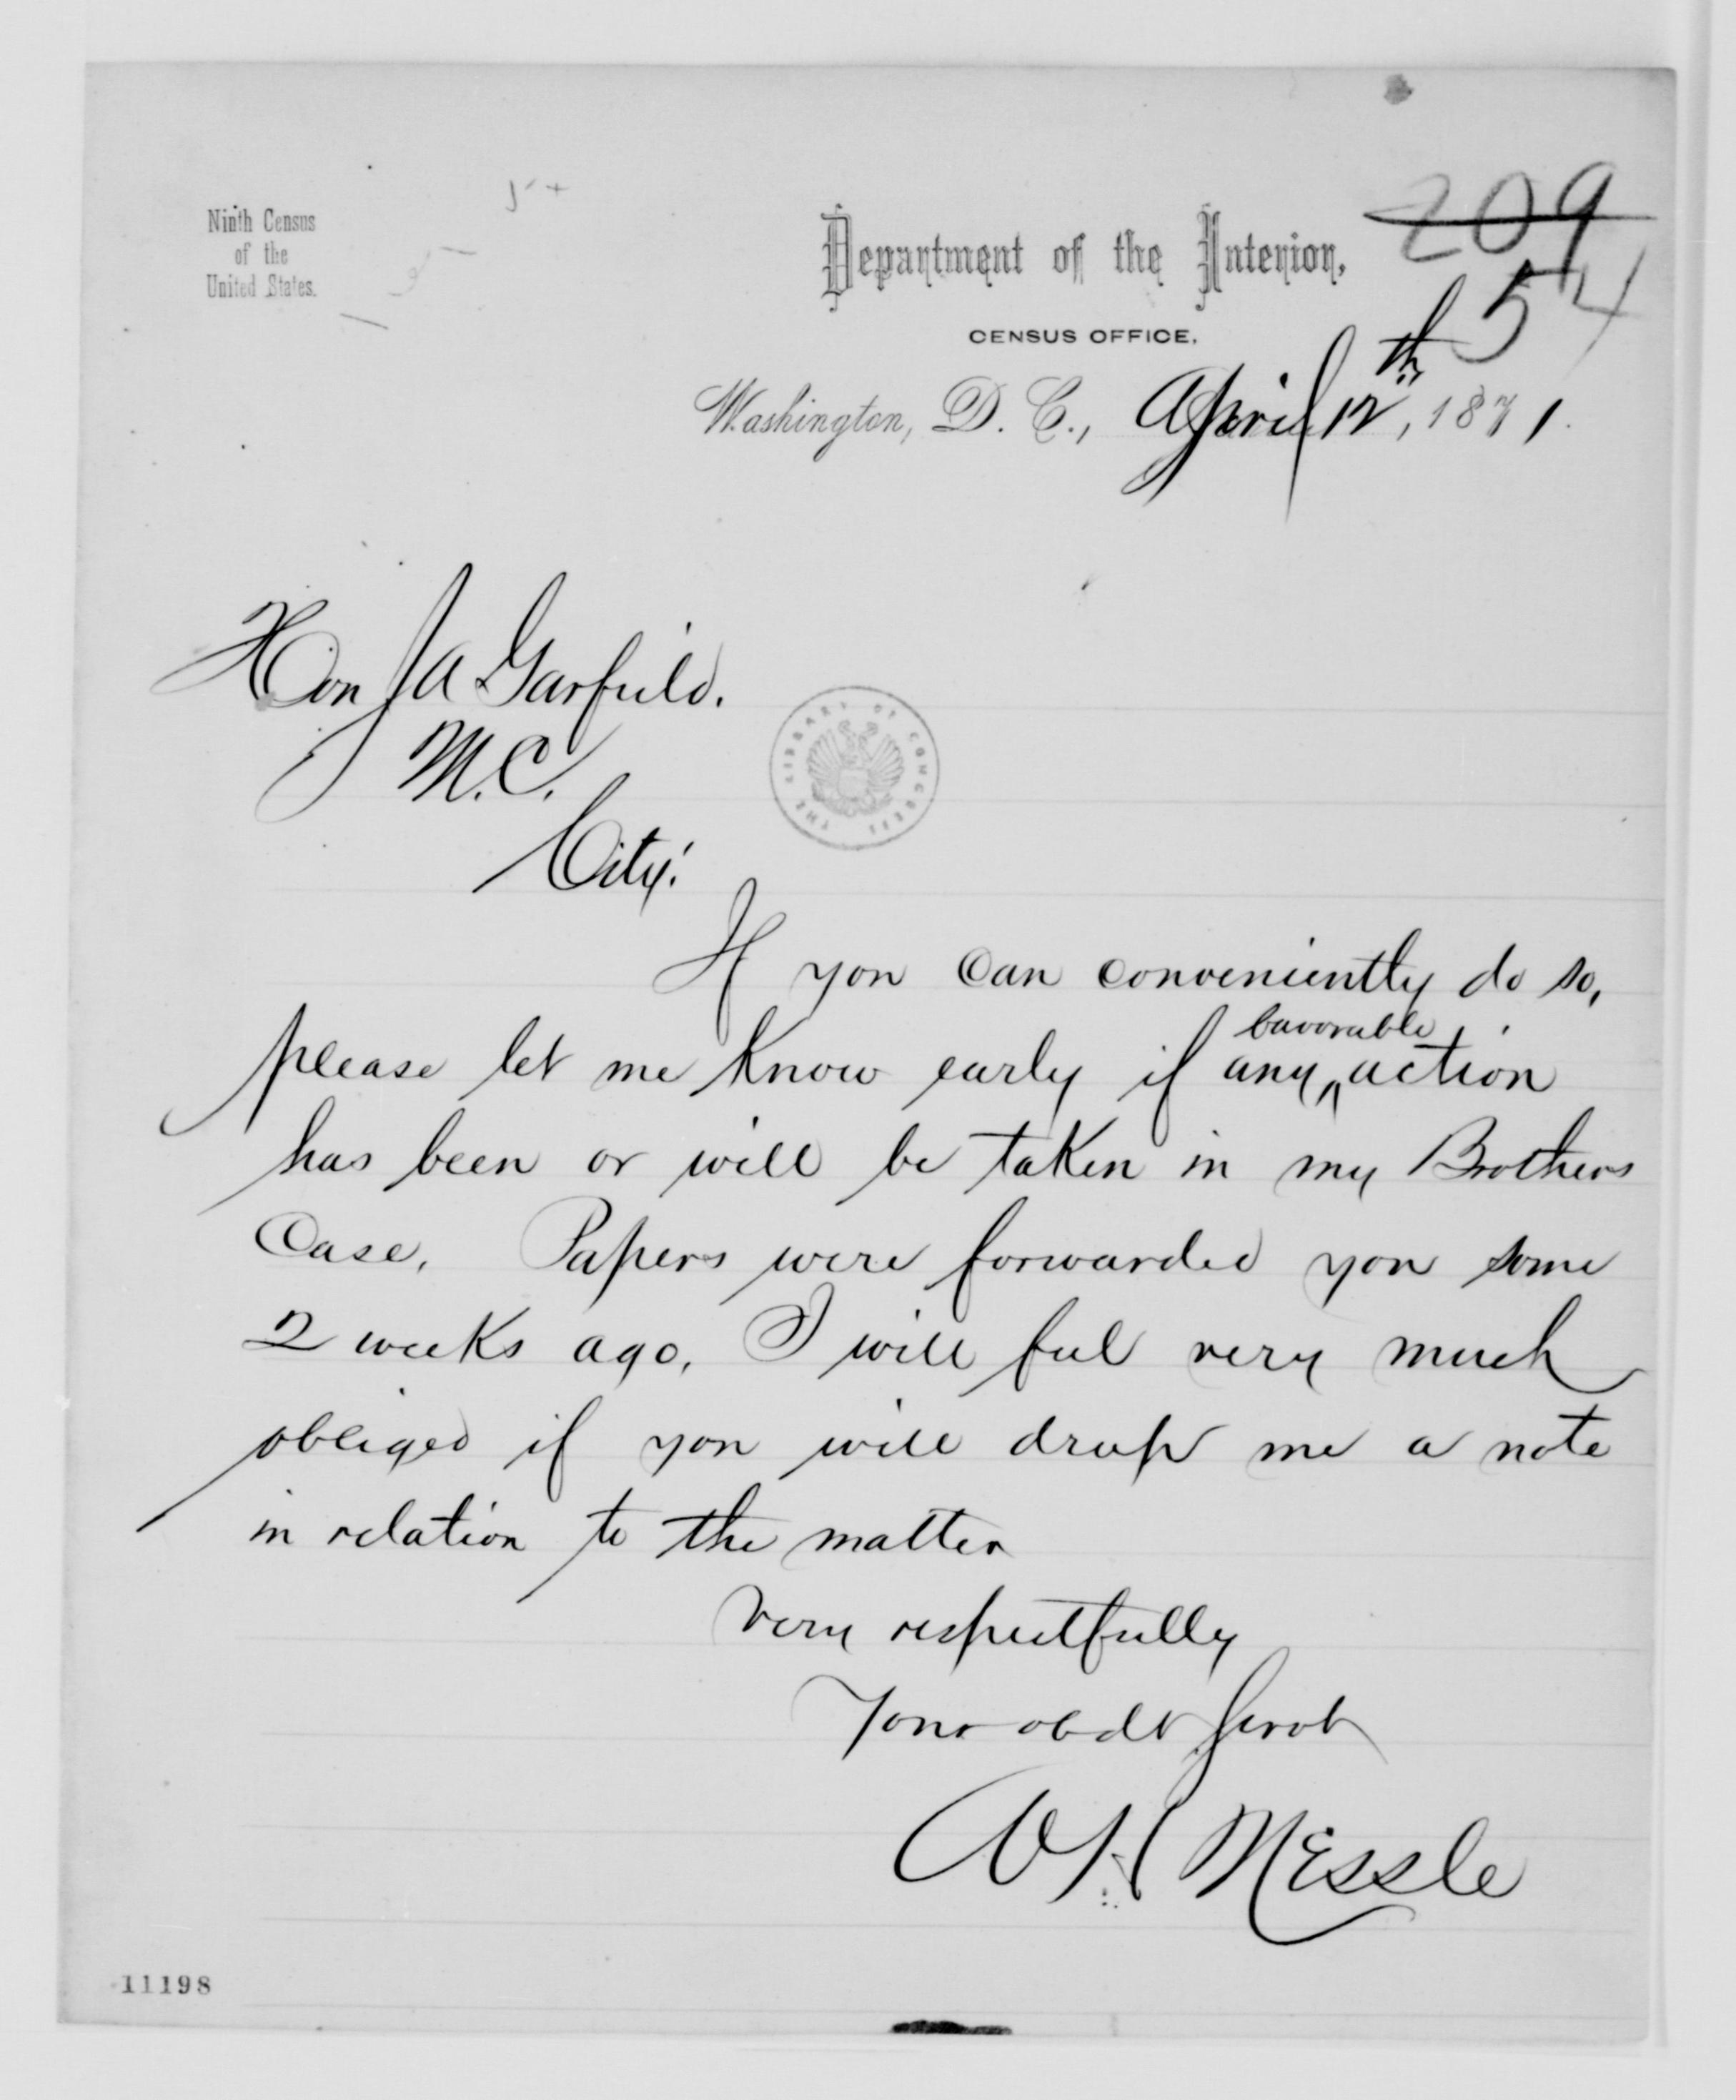 Ninth Census
of the
United States.
209
54
Department of the Interior,
CENSUS OFFICE,
Washington, D. C., April 12th, 1871.
Hon J A Garfield.
M.C.
City:
THE LIBRARY OF CONGRESS
If you can conveniently do so,
please let me know early if any favorable action
has been or will be taken in my Brothers
Case. Papers were forwarded you some
2 weeks ago. I will feel very much
obliged if you will drop me a note
in relation to the matter
Very respectfully
Your obdt Servt
W H Nessle
11198